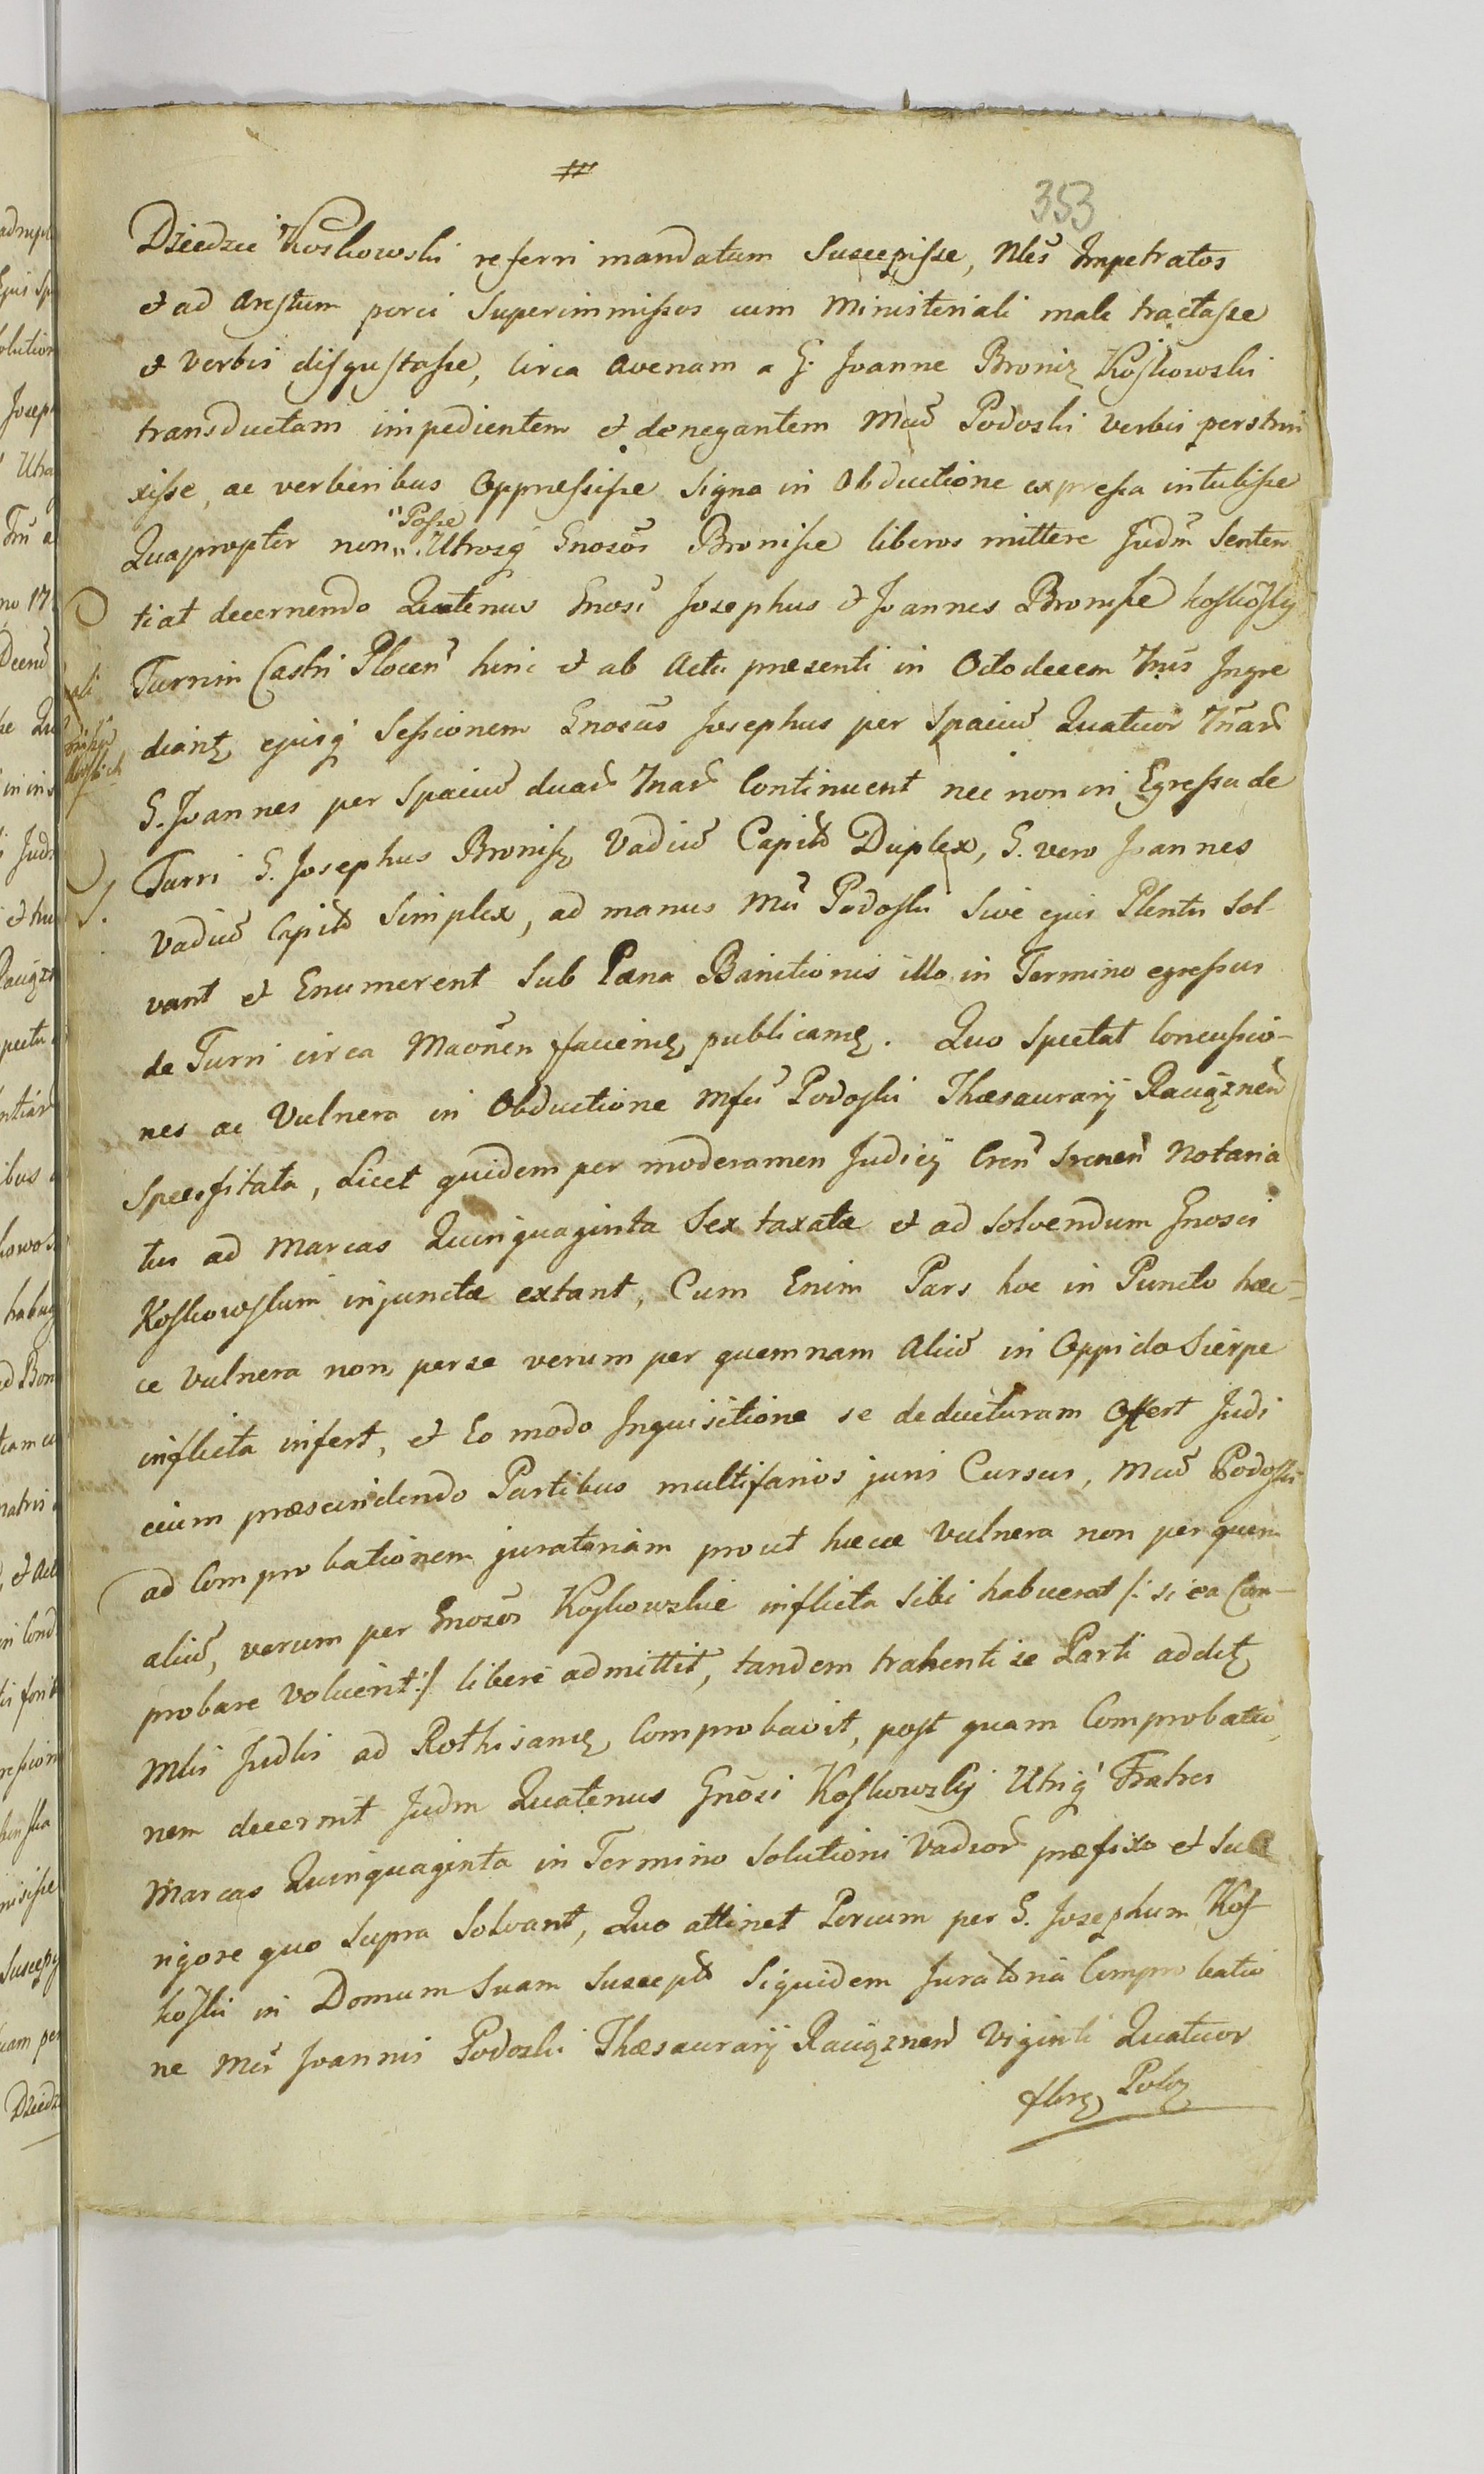 #
353
Dziedzic Koskowski referri mandatum Suscepisse, Nles Impetratos
et ad Arestum porci Superimmissos cum Ministeriali male tractasse
et Verbis disgustasse, circa Avenam a G. Joanne Bronisz Koskowski
transductam impedientem et denegantem Mcum Podoski verbis perstrin
xisse, ac verberibus Oppressisse signa in Obductione expressa intulisse
Quapropter non "Posse" Utrosq Gnosos Bronisze liberos mittere Judm Senten
tiat decernendo Quatenus Gnosi Josephus et Joannes Bronisze Koskoscy
Turrim Castri Plocen hinc et ab Actu praesenti in Octodecem 7nis Ingre
diantz ejusq Sessionem Gnosus Josephus per Spacium Quatuor 7nar
G. Joannes per Spacium duar 7nar Continuent nec non in Egressu de
Turri G. Josephus Bronisz Vadium Capitle Duplex, G. vero Joannes
Vadium Capitle Simplex, ad manus Mci Podoski sive ejus Plentis Sol
vant et Enumerent Sub Paena Banitionis illo in Termino egressus
de Turri circa Maonen faciend publicand. Quo Spectat Concussio-
nes ac Vulnera in Obductione Mfci Podoski Thaesaurarij Raciąznen
Specifitata, Licet quidem per moderamen Judicij Cren Srenen Notaria
tus ad Marcas Quinquaginta Sex taxata et ad Solvendum Gnosis
Koskowskim injuncta extant, Cum Enim Pars hoc in Puncto haec-
ce Vulnera non per se verum per quemnam Alium in Oppido Sierpc
inflicta infert, et Eo modo Inquisitione se deducturam Offert Judi
cium praescindendo Partibus multifarios juris Cursus, Mcum Podoski
ad Comprobationem juratoriam prout haecce Vulnera non per quem
alium, verum per Gnosos Koskowskie inflicta Sibi habuerat /: si ea Com-
probare Voluerit :/ libere admittit, tandem trahenti se Parti additz
Mlis Judlis ad Rothisand Comprobavit, post quam Comprobatio
nem decernit Judm Quatenus Gnosi Koskowscy Utriq Fratres
Marcas Quinquaginta in Termino Solutioni Vadior praefixo et Sub
rigore quo Supra Solvant, Quo attinet Porcum per G. Josephum Kos
koski in Domum Suam Suscept Siquidem Juratoria Comprobatio
ne Mci Joannis Podoski Thaesaurarij Raciąznen Viginti Quatuor
flor Pol